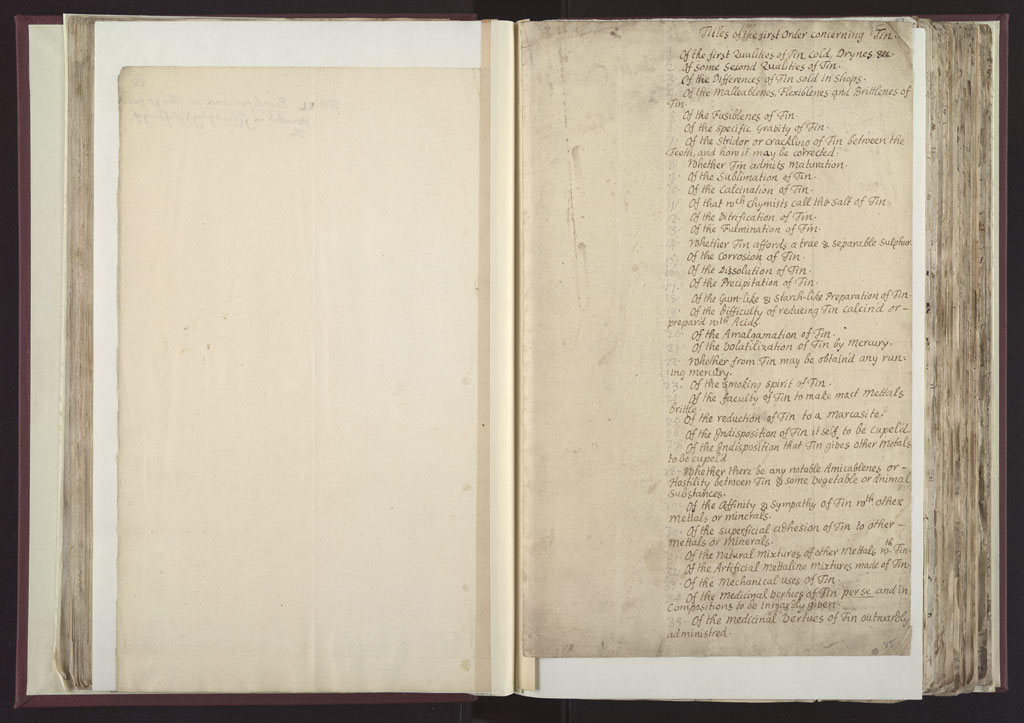 Titles of the first Order concerning Tin.
Of the first Qualities of Tin cold, Drynes &c.
2. Of some Second Qualities of Tin.
3. Of the Differences of Tin sold in Shops.
Of the Malleablenes, Flexiblenes and Brittlenes of
Tin.
5. Of the Fusiblenes of Tin.
6. Of the Specific Gravity of Tin.
7. Of the Stridor or crackling of Tin between the
Teeth, and how it may be corrected.
Whether Tin admits Maturation.
Of the Sublimation of Tin.
Of the Calcination of Tin.
11. Of that wch Chymists call the Salt of Tin.
12. Of the Vitrification of Tin.
13. Of the Fulmination of Tin.
Whether Tin affords a true & separable Sulphur
Of the Corrosion of Tin.
Of the Dissolution of Tin.
17. Of the Precipitation of Tin.
Of the Gum-like & Starch-like Preparation of Tin.
Of the difficulty of reducing Tin calcind or -
prepard wth Acids.
Of the Amalgamation of Tin.
21. Of the Volatilization of Tin by Mercury.
22. Whether from Tin may be obtaind any run-
ing mercury.
23. Of the Smoking Spirit of Tin.
Of the faculty of Tin to make most Mettals
brittle
Of the reduction of Tin to a Marcasite.
Of the Indisposition of Tin itself to be cupel'd.
Of the Indisposition that Tin gives other Metals
to be cupel'd
Whether there be any notable Amicablenes or -
Hostility between Tin & some Vegetable or Animal
Substances.
Of the Affinity & Sympathy of Tin wth other
Mettals or minerals.
Of the superficial adhesion of Tin to other -
Mettals or Minerals.
Of the Natural Mixtures of other Mettals wth Tin.
Of the Artificial Mettaline Mixtures made of Tin.
Of the Mechanical uses of Tin.
34. Of the Medicinal Vertues of Tin per se and in
Compositions to be inwardly given.
35. Of the medicinal Vertues of Tin outwardly
administred.